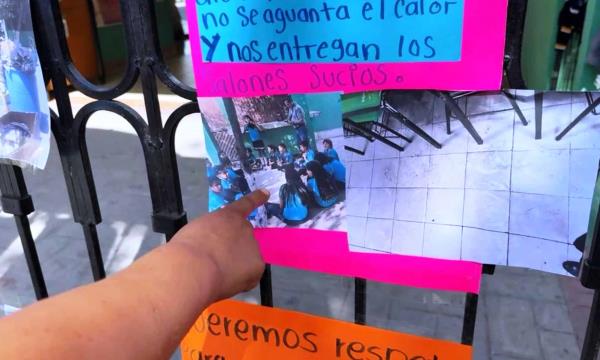 no se aguanta el calor
y nos entregan los
salones sucios.
Queremos respe